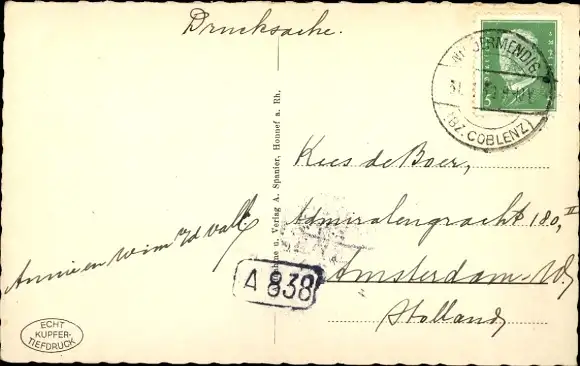 Drucksache.
NIEDERMENDIG
31.
(BZ. COBLENZ)
5
Kees de Boer,
Admiralengracht 180, II
Amsterdam-W,
Holland,
Annie en Wim
A 838
u. Verlag A. Spanier, Honnef a. Rh.
ECHT
KUPFER-
TIEFDRUCK